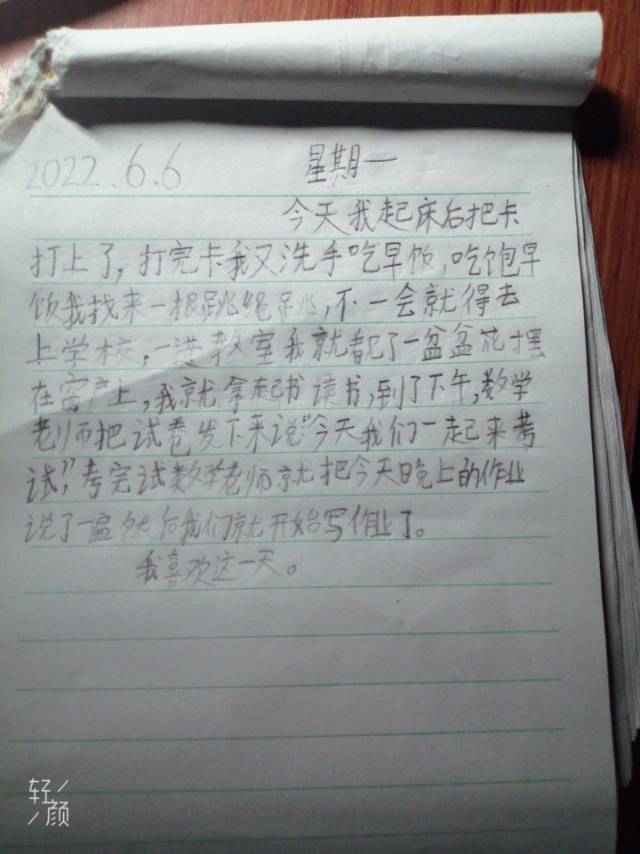 2022.6.6 星期一
今天我起床后把卡
打上了,打完卡我又洗手吃早饭,吃饱早
饭我找来一根跳绳跳,不一会就得去
上学校,一进教室我就看见了一盆盆花摆
在窗户上,我就拿起书读书,到了下午,数学
老师把试卷发下来说“今天我们一起来考
试”,考完试数学老师就把今天晚上的作业
说了一遍然后我们就开始写作业了。
我喜欢这一天。
轻颜